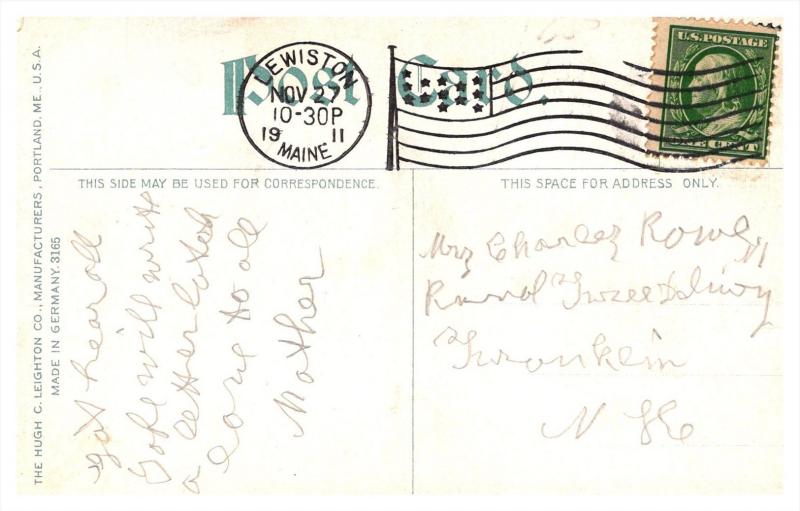 Post Card.
LEWISTON
NOV 27
10-30P
19 11
MAINE
U.S. POSTAGE
ONE CENT
THIS SIDE MAY BE USED FOR CORRESPONDENCE.
THIS SPACE FOR ADDRESS ONLY.
THE HUGH C. LEIGHTON CO., MANUFACTURERS, PORTLAND, ME., U.S.A.
MADE IN GERMANY. 3165
got hear
will write
a letter
love to all
Mother
Mrs Charles Rowell
Rural Free
N H